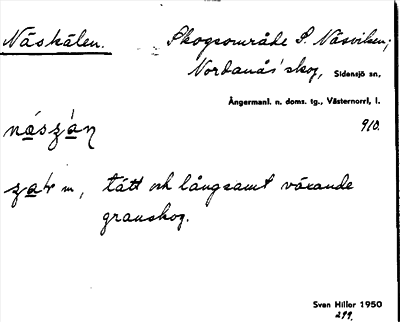 Näskälen. Skogsområde S. Näsviken;
Nordanås' skog, Sidensjö sn,
Ångermanl. n. doms. tg., Västernorrl, l.
910.
tätt och långsamt växande
granskog.
Sven Hillor 1950
299.